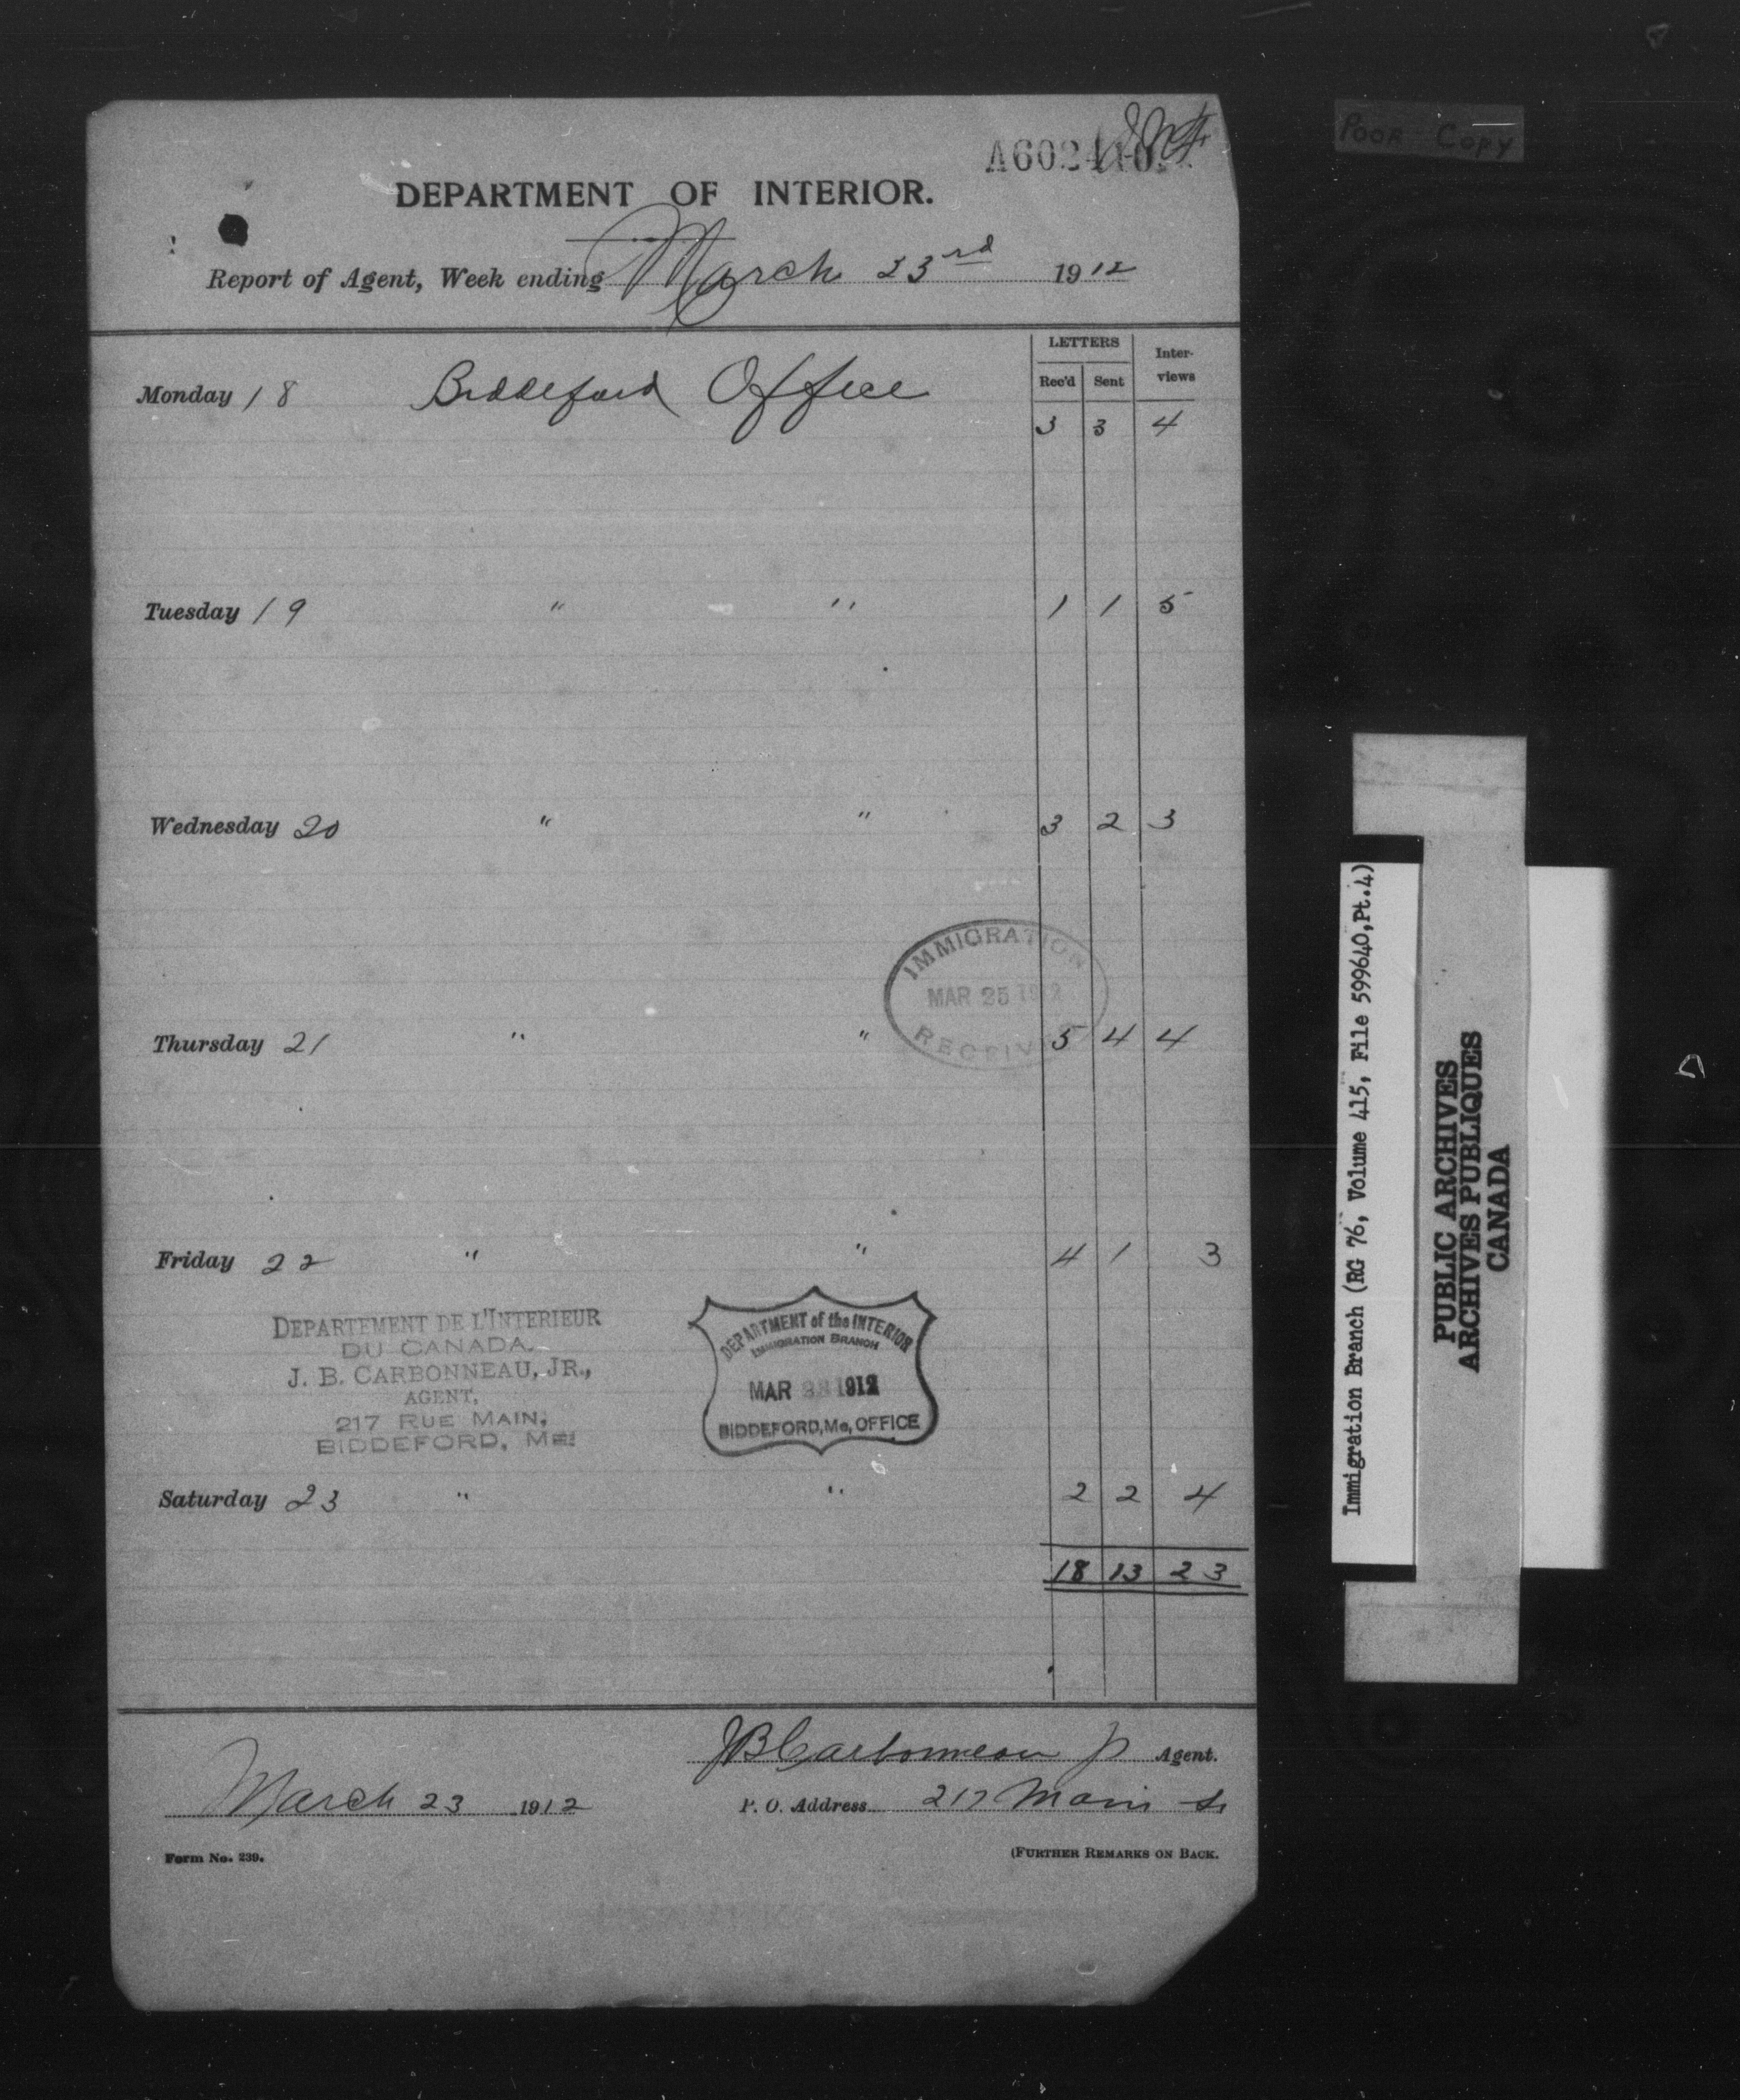 Poor Copy
DEPARTMENT OF INTERIOR.
Report of Agent, Week ending March 23rd 1912
LETTERS Inter-views
Rec'd Sent
Monday 18 Biddeford Office 3 3 4
Tuesday 19 " " 1 1 5
Wednesday 20 " " 3 2 3
IMMIGRATION
MAR 25 1912
RECEIVED
Thursday 21 " " 5 4 4
Friday 22 " " 4 1 3
DEPARTEMENT DE L'INTERIEUR
DU CANADA.
J. B. CARBONNEAU, JR.,
AGENT,
217 RUE MAIN,
BIDDEFORD, ME.
DEPARTMENT of the INTERIOR
IMMIGRATION BRANCH
MAR 1912
BIDDEFORD, Me, OFFICE
Saturday 23 " " 2 2 4
18 13 23
JB Carbonneau Jr Agent.
March 23 1912 P. O. Address 217 Main St
Form No. 239. (FURTHER REMARKS ON BACK.
Immigration Branch (RG 76, Volume 415, File 599640,Pt.4)
PUBLIC ARCHIVES
ARCHIVES PUBLIQUES
CANADA